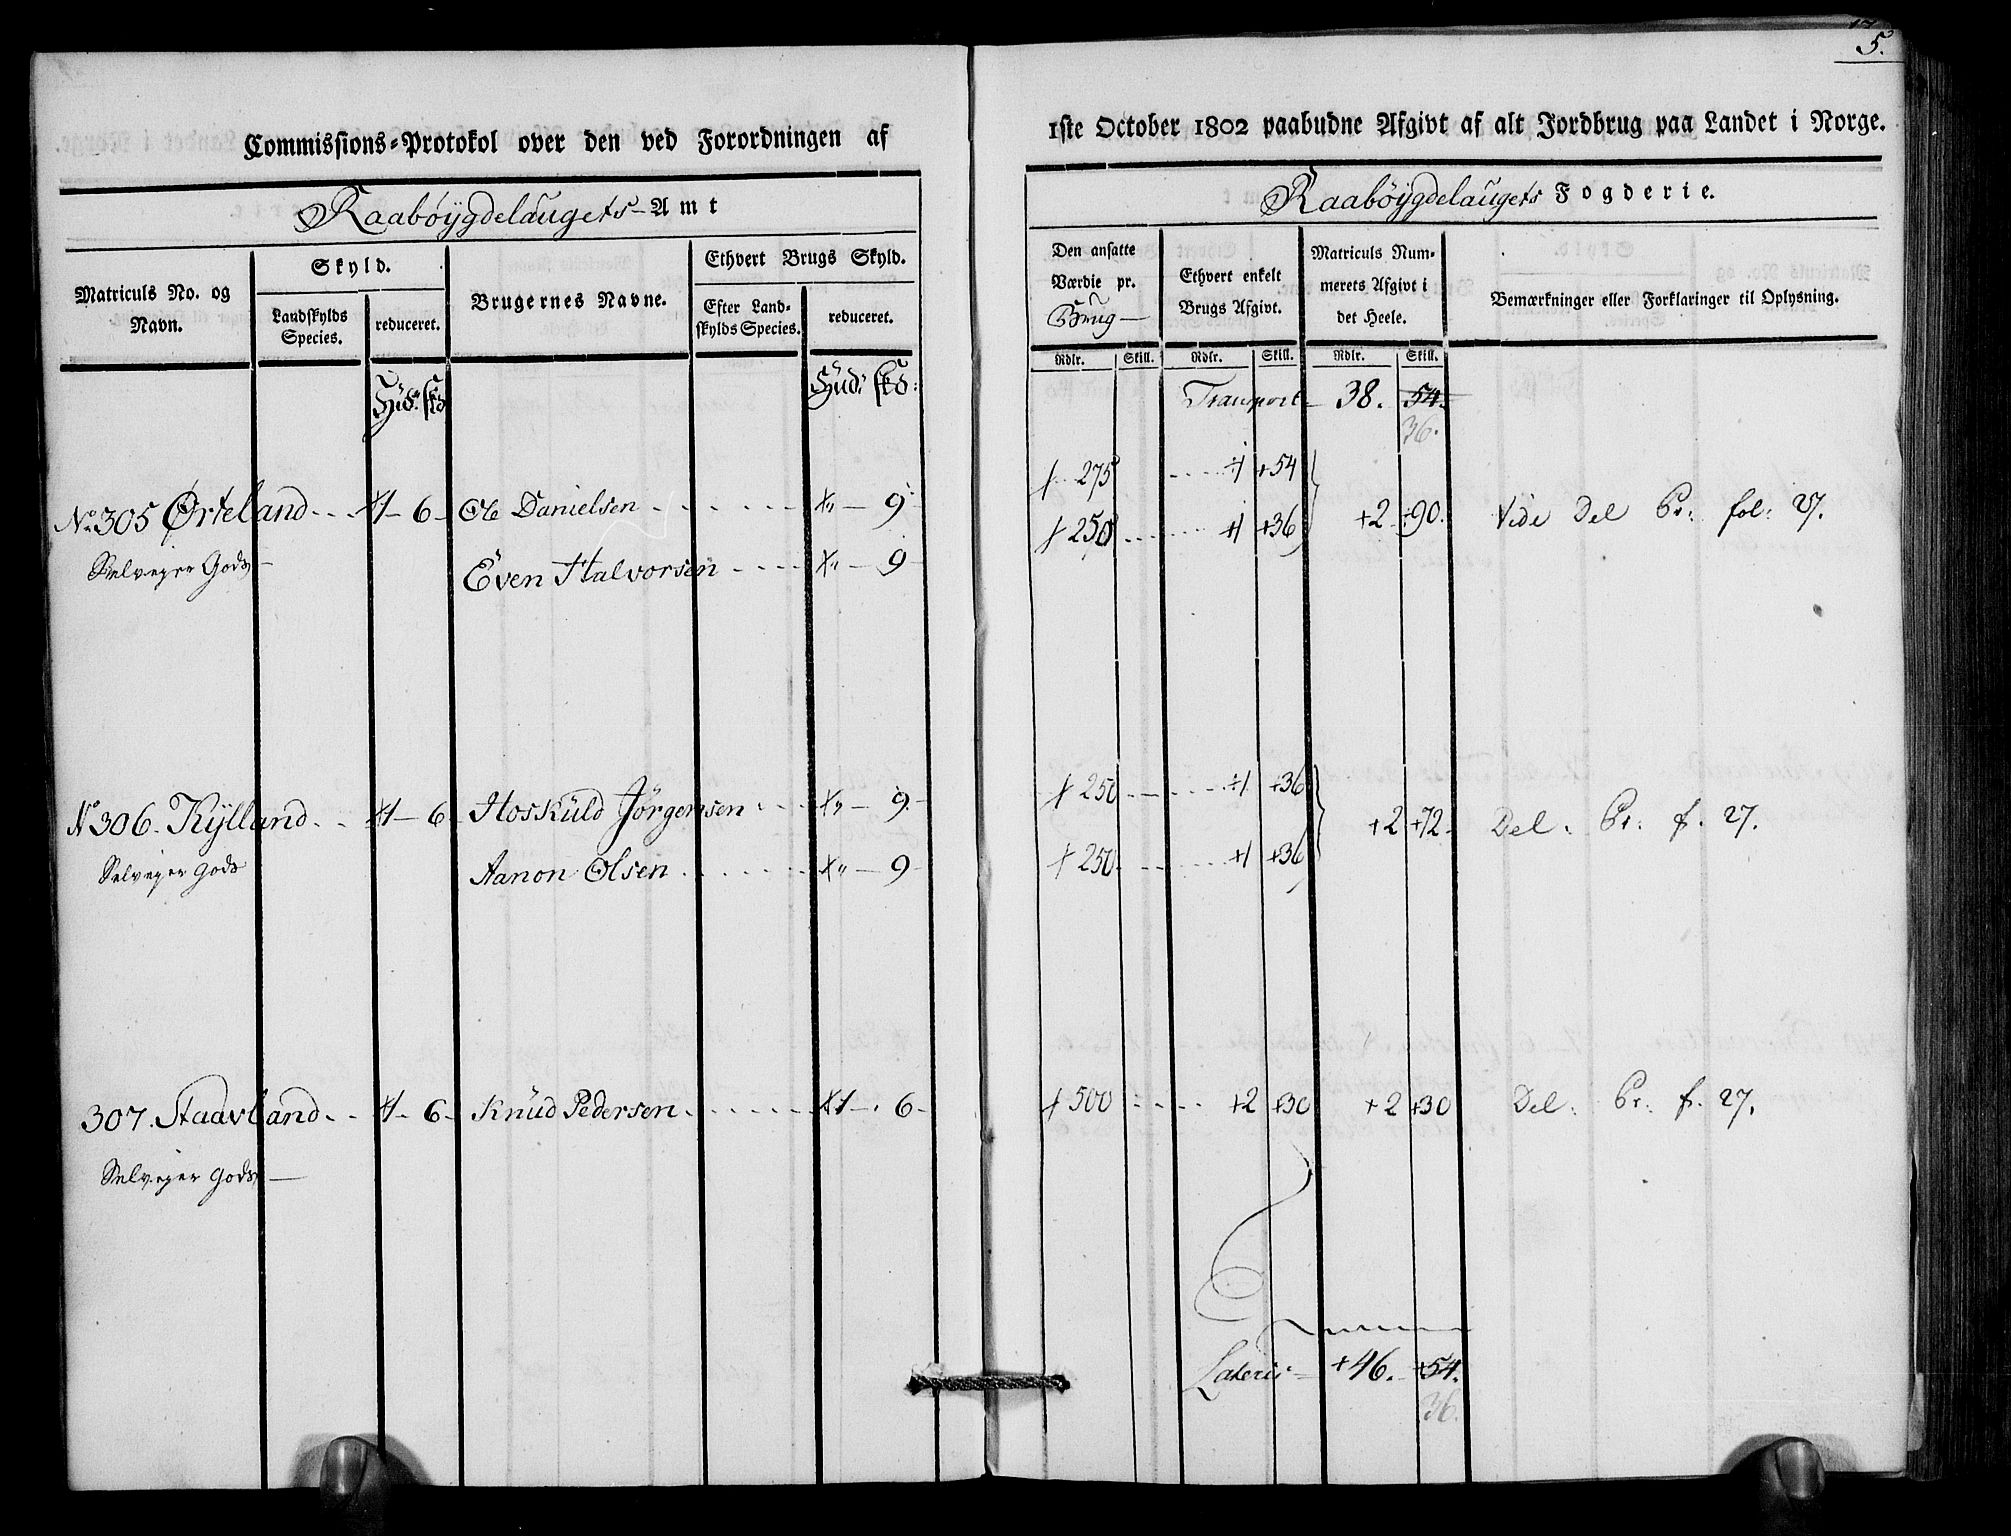 5.
Commissions-Protokol over den ved Forordningen af
1ste October 1802 paabudne Afgivt af alt Jordbrug paa Landet i Norge.
Raabøygdelaugets Amt
Raabøygdelaugets Fogderie.
Matriculs No. og Navn.
Skyld.
Landskylds Species.
reduceret.
Brugernes Navne.
Ethvert Brugs Skyld.
Efter Landskylds Species.
reduceret.
Den ansatte Værdie pr. Brug
Ethvert enkelt Brugs Afgivt.
Matriculs Nummerets Afgivt i det Heele.
Bemærkninger eller Forklaringer til Oplysning.
Rdlr. Skill. Rdlr. Skill. Rdlr. Skill.
Hud: skd
Hud: skd:
Transport 38. 54.
36.
No 305 Ørteland 1 6 Ole Danielsen " 9 275 1 54
Selveyer Gods Even Halvorsen " 9 250 1 36 2 90. Vide Del Pr: fol: 27.
No 306. Kylland 1 6 Hoskuld Jørgensen " 9 250 1 36
Selveyer Gods Aanon Olsen " 9 250 1 36 2 72 Del: Pr: f. 27.
307. Staavland 1 6 Knud Pedersen 1 6 500 2 30 2 30 Del: Pr: f. 27.
Selveyer Gods
Lateris 46. 54.
36.